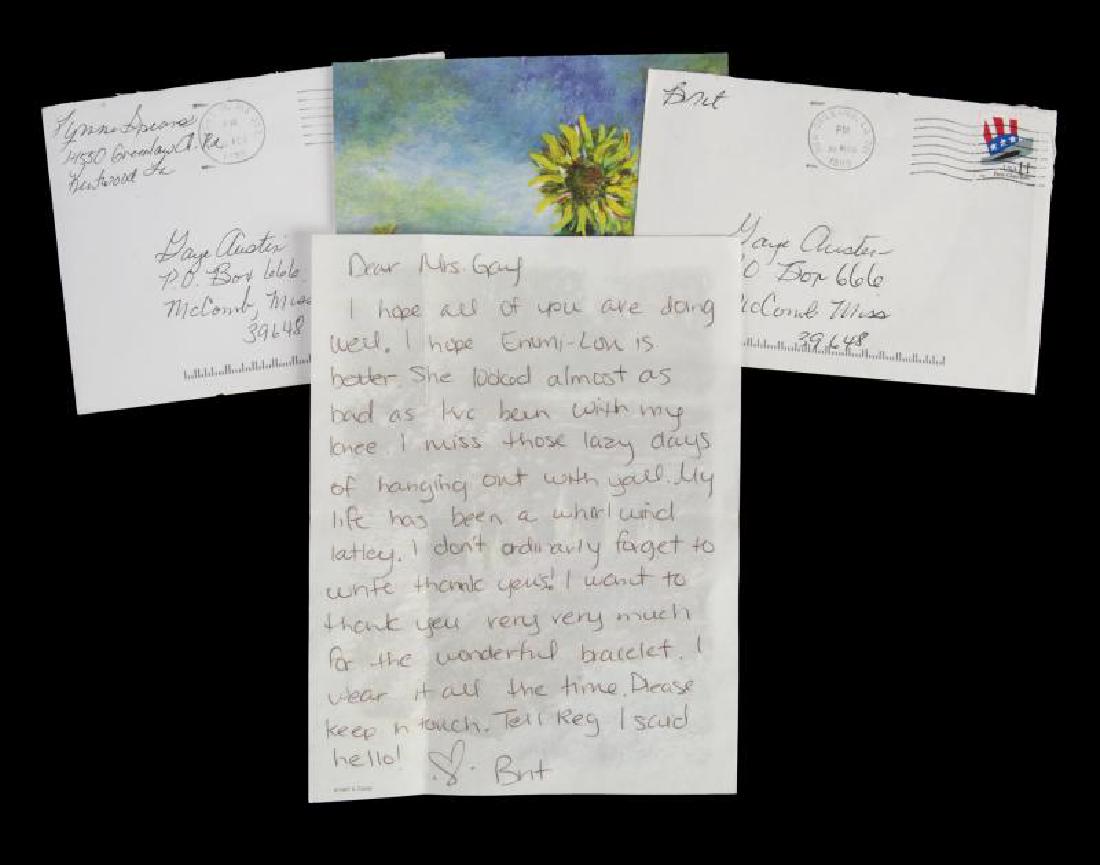 Lynne Spears
Kentwood La
PM
Gaye Austin
P.O. Box 666
McComb, Miss
39648
Brit
PM
1999
USA
Gaye Austin
PO Box 666
McComb Miss
39648
Dear Mrs. Gay
I hope all of you are doing
well. I hope Emmi-Lou is
better. She looked almost as
bad as I've been with my
knee. I miss those lazy days
of hanging out with yall. My
life has been a whirl wind
latley. I don't ordinarly forget to
write thank you's! I want to
thank you very very much
for the wonderful bracelet. I
wear it all the time. Please
keep n touch. Tell Reg I said
hello!
Brit